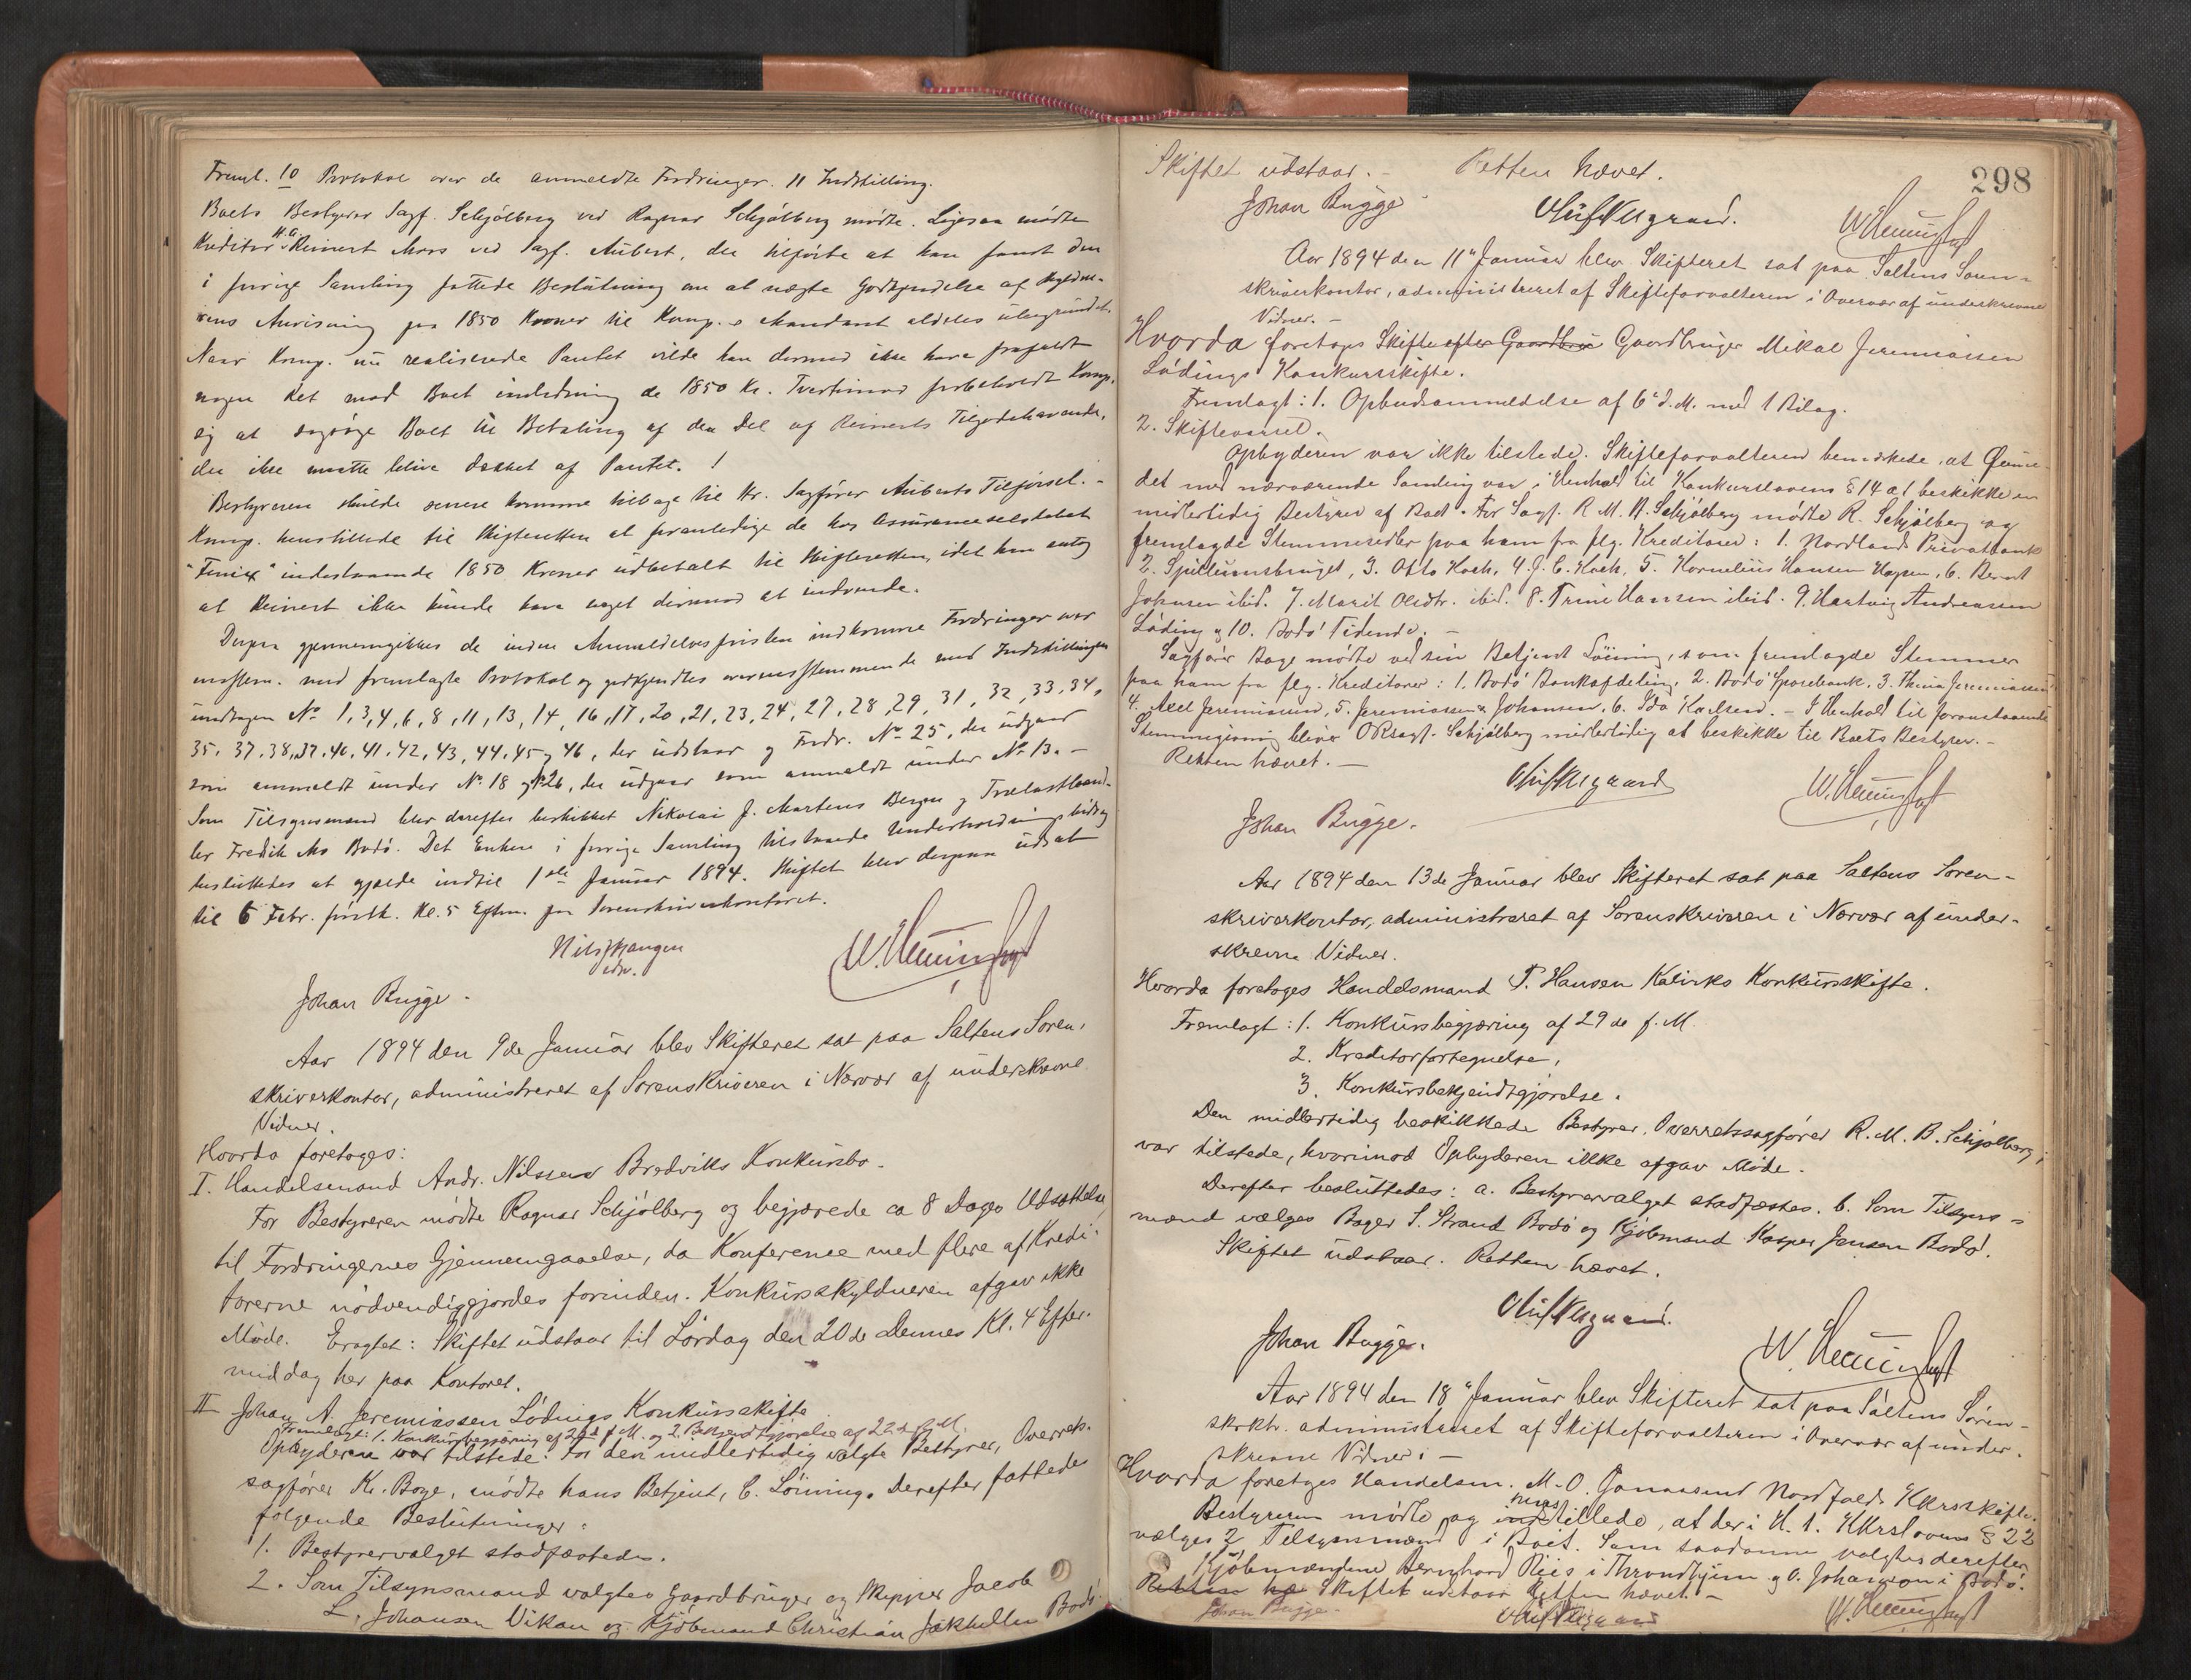 Freml. 10 Protokol over de anmeldte Fordringer. 11 Indstilling.
Boets Bestyrer Sagf. Schjølberg ved Ragnar Schjølberg mødte. Ligesaa mødte
Kreditor H. G. Reinert Moss ved Sagf. Aubert, der tilførte at han fandt den
i forrige Samling fattede Beslutning om at nægte Godkjendelse af
Anvisning paa 1850 Kroner til Komp.s Mandant aldeles ubegrundet.
Naar Komp. nu realiserede Pantet vilde han dermed ikke have frafaldt
nogen Ret mod Boet inddrivning de 1850 Kr. Tvertimod forbeholdt Komp.
sig at søge Boet til Betaling af den Del af Reinerts Tilgodehavende,
der ikke maatte blive dækket af Pantet. !
Bestyreren skulde senere komme tilbage til Hr. Sagfører Auberts Tilførsel. -
Komp. henstillede til Skifteretten at foranledige de hos Assuranceselskabet
"Fenix" indestaaende 1850 Kroner udbetalt til Skifteretten, idet han antog
at Reinert ikke kunde have noget derimod at indvende.
Derpaa gjennemgikkes de inden Anmeldelsesfristen indkomne Fordringer over
ensstem. med fremlagte Protokol og godkjendtes overensstemmende med Indstillingen
undtagen No 1, 3, 4, 6, 8, 11, 13, 14, 16, 17, 20, 21, 23, 24, 27, 28, 29, 31, 32, 33, 34,
35. 37. 38, 39. 40. 41. 42, 43, 44. 45 og 46, der udstaar og Fordr. No 25, der udgaar
som anmeldt under No 18 og 26, der udgaar som anmeldt under No 13. -
Som Tilsynsmænd blev derefter beskikket Nikolai J. Martens Bergen og Trælasthand-
ler Fredrik Mo Bodø. Det Enken i forrige Samling tilstaaede Underholdningsbidrag
besluttedes at gjælde indtil 1ste Januar 1894. Skiftet blev derpaa udsat
til 6 Febr. førstk. Kl. 5 Eftm. paa Sorenskriverkontoret.
Johan Bugge.
Aar 1894 den 9de Januar blev Skifteret sat paa Saltens Soren-
skriverkontor, administreret af Sorenskriveren i Nærvær af underskrevne
Vidner.
Hvorda foretoges:
I. Handelsmand Andr. Nilssens Bredviks Konkursbo.
For Bestyreren mødte Ragnar Schjølberg og begjærede ca 8 Dages Udsættelse
til Fordringernes Gjennemgaaelse, da Konference med flere af Kredi-
torerne nødvendiggjordes forinden. Konkursskyldneren afgav ikke
Møde. Eragtet: Skiftet udstaar til Lørdag den 20de dennes Kl. 4 Efter-
middag her paa Kontoret.
II Johan A. Jeremiassen Lødings Konkursskifte
Fremlagt: 1. Konkursbegjæring af 22d f. M. og 2. Bekjendtgjørelse af 22d f. M.
Opbyderen var tilstede. For den midlertidig valgte Bestyrer, Overrets-
sagfører Kr. Boge, mødte hans Betjent, C. Löining. Derefter fattedes
følgende Beslutninger:
1. Bestyrervalget stadfæstedes.
2. Som Tilsynsmænd valgtes Gaardbruger og Skipper Jacob
L. Johansen Vikan og Kjøbmand Christian Jakhelln Bodø.
298
Skiftet udstaar. - Retten hævet.
Johan Bugge
Aar 1894 den 11" Januar blev Skifteret sat paa Saltens Soren-
skriverkontor, administreret af Skifteforvalteren i Overvær af underskrevne
Vidner. -
Hvorda foretoges Skifte efter Gaardbru Gaardbruger Mikal Jeremiassen
Lødings Konkursskifte.
Fremlagt: 1. Opbudsanmeldelse af 6" d. M. med 1 Bilag.
2. Skiftevarsel.
Opbyderen var ikke tilstede. Skifteforvalteren bemærkede, at Øiem-
det med nærværende Samling var i Henhold til Konkurslovens § 14 a 1 beskikke en
midlertidig Bestyrer af Boet. For Sagf. R. M. B. Schjølberg mødte R. Schjølberg og
fremlagde Stemmesedler paa ham fra flg. Kreditorer: 1. Nordlands Privatbank
2. Spillumsbruget, 3. Otto Koch, 4. J. C. Koch, 5. Kornelius Hansen, 6. Bernt
Johnsen ibid. 7. Marit Olsdtr. ibid. 8. Trine Hansen ibid. 9. Hartvig Andreassen
Løding og 10. Bodø Tidende. -
Sagfører Boge mødte ved sin Betjent Löining, som fremlagde Stemmer
paa ham fra flg. Kreditorer: 1. Bodø Bankafdeling, 2. Bodø Sparebank, 3. Thina Jeremiassen
4. Axel Jeremiassen, 5. Jeremiassen & Johansen, 6. Ida Karlsen. - I Henhold til foranstaaende
Stemmegivning bliver ORsagf. Schjølberg midlertidig at beskikke til Boets Bestyrer. -
Retten hævet. -
Johan Bugge.
Aar 1894 den 13de Januar blev Skifteret sat paa Saltens Soren-
skriverkontor, administreret af Sorenskriveren i Nærvær af under-
skrevne Vidner.
Hvorda foretoges Handelsmand P. Hansen Kalviks Konkursskifte.
Fremlagt: 1. Konkursbegjæring af 29de f. M.
2. Kreditorfortegnelse,
3. Konkursbekjendtgjørelse.
Den midlertidig beskikkede Bestyrer, Overretssagfører R. M. B. Schjølberg,
var tilstede, hvorimod Opbyderen ikke afgav Møde.
Derefter besluttedes: a. Bestyrervalget stadfæstes. b. Som Tilsyns-
mænd vælges Bager S. Strand Bodø og Kjøbmand Kasper Jensen Bodø.
Skiftet udstaar. Retten hævet.
Johan Bugge.
Aar 1894 den 18" Januar blev Skifteret sat paa Saltens Søren-
skrktr. administreret af Skifteforvalteren i Overvær af under-
skrevne Vidner: -
Hvorda foretoges Handelsm. M. O. Jonassens Nordfolds Kkrsskifte.
Bestyreren mødte og henstillede, at der i H. t. KKrslovens § 22
vælges 2 Tilsynsmænd i Boet. Som saadanne valgtes derefter
Kjøbmændene Bernhard Riis i Throndhjem og O. Johansen i Bodø.
Retten hæ Skiftet udstaar Retten hævet. -
Johan Bugge.